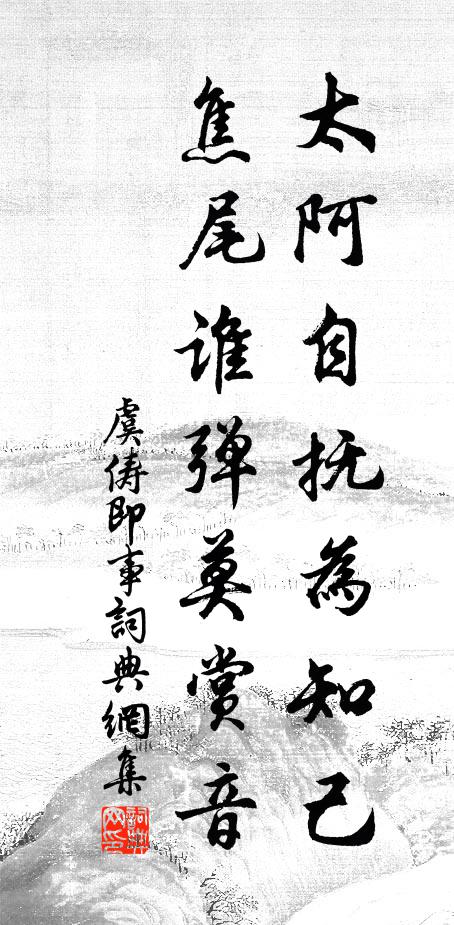 太阿自抚為知己
焦尾谁弹莫赏音
虞俦即事詞典網集